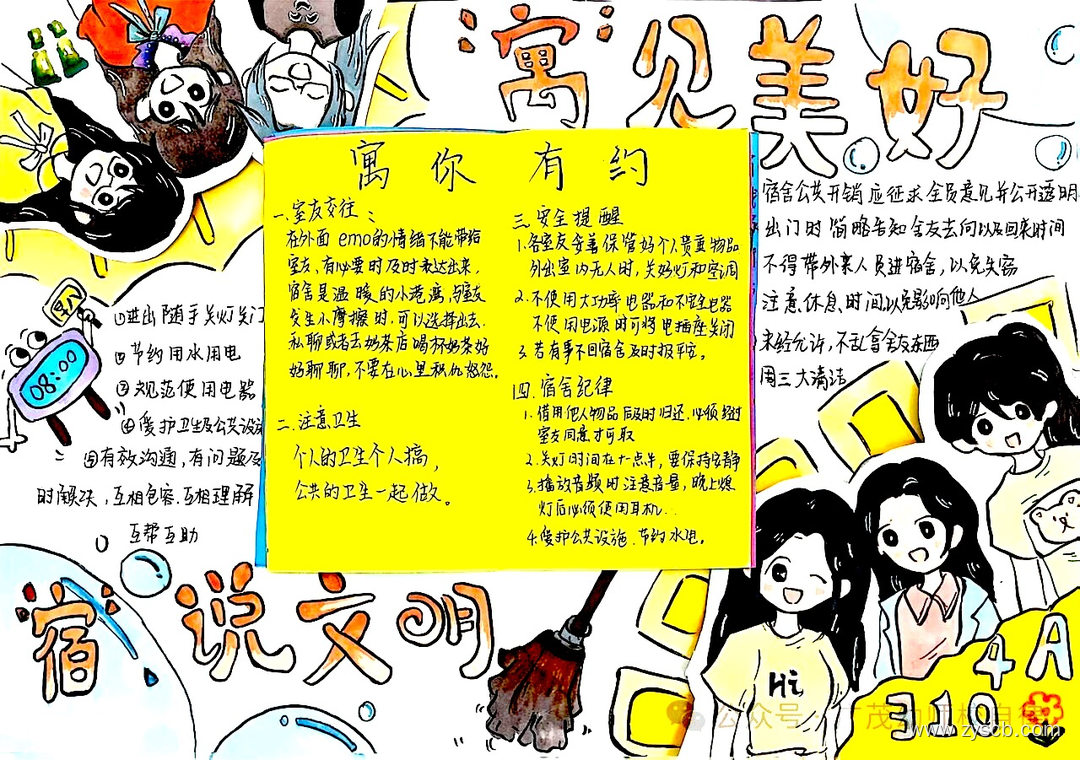 寓见美好
寓你有约
一.室友交往：
在外面emo的情绪不能带给
室友,有必要时及时表达出来,
宿舍是温暖的小港湾,与室友
发生小摩擦时,可以选择出去
私聊或者去奶茶店喝杯奶茶好
好聊聊,不要在心里积仇怒怨。
二.注意卫生
个人的卫生个人搞,
公共的卫生一起做。
三.安全提醒
1.各室友妥善保管好个人贵重物品
外出室内无人时,关好灯和空调
2.不使用大功率电器和不安全电器
不使用电源时可将电插座关闭
3.若有事不回宿舍及时报平安。
四.宿舍纪律
1.借用他人物品后及时归还,必须经过
室友同意才可取
2.关灯时间在十点半,要保持安静
3.播放音频时注意音量,晚上熄
灯后必须使用耳机..
4.爱护公共设施.节约水电。
宿舍公共开销应征求全员意见并公开透明
出门时简略告知舍友去向以及回来时间
不得带外来人员进宿舍,以免失窃
注意休息时间以免影响他人
未经允许,不乱拿舍友东西
周三大清洁
早八
08:00
①进出随手关灯关门
②节约用水用电
③规范使用电器
④爱护卫生及公共设施
⑤有效沟通,有问题及
时解决,互相包容.互相理解
互帮互助
宿说文明
Hi
4A
310
公众号
www.zyscb.com